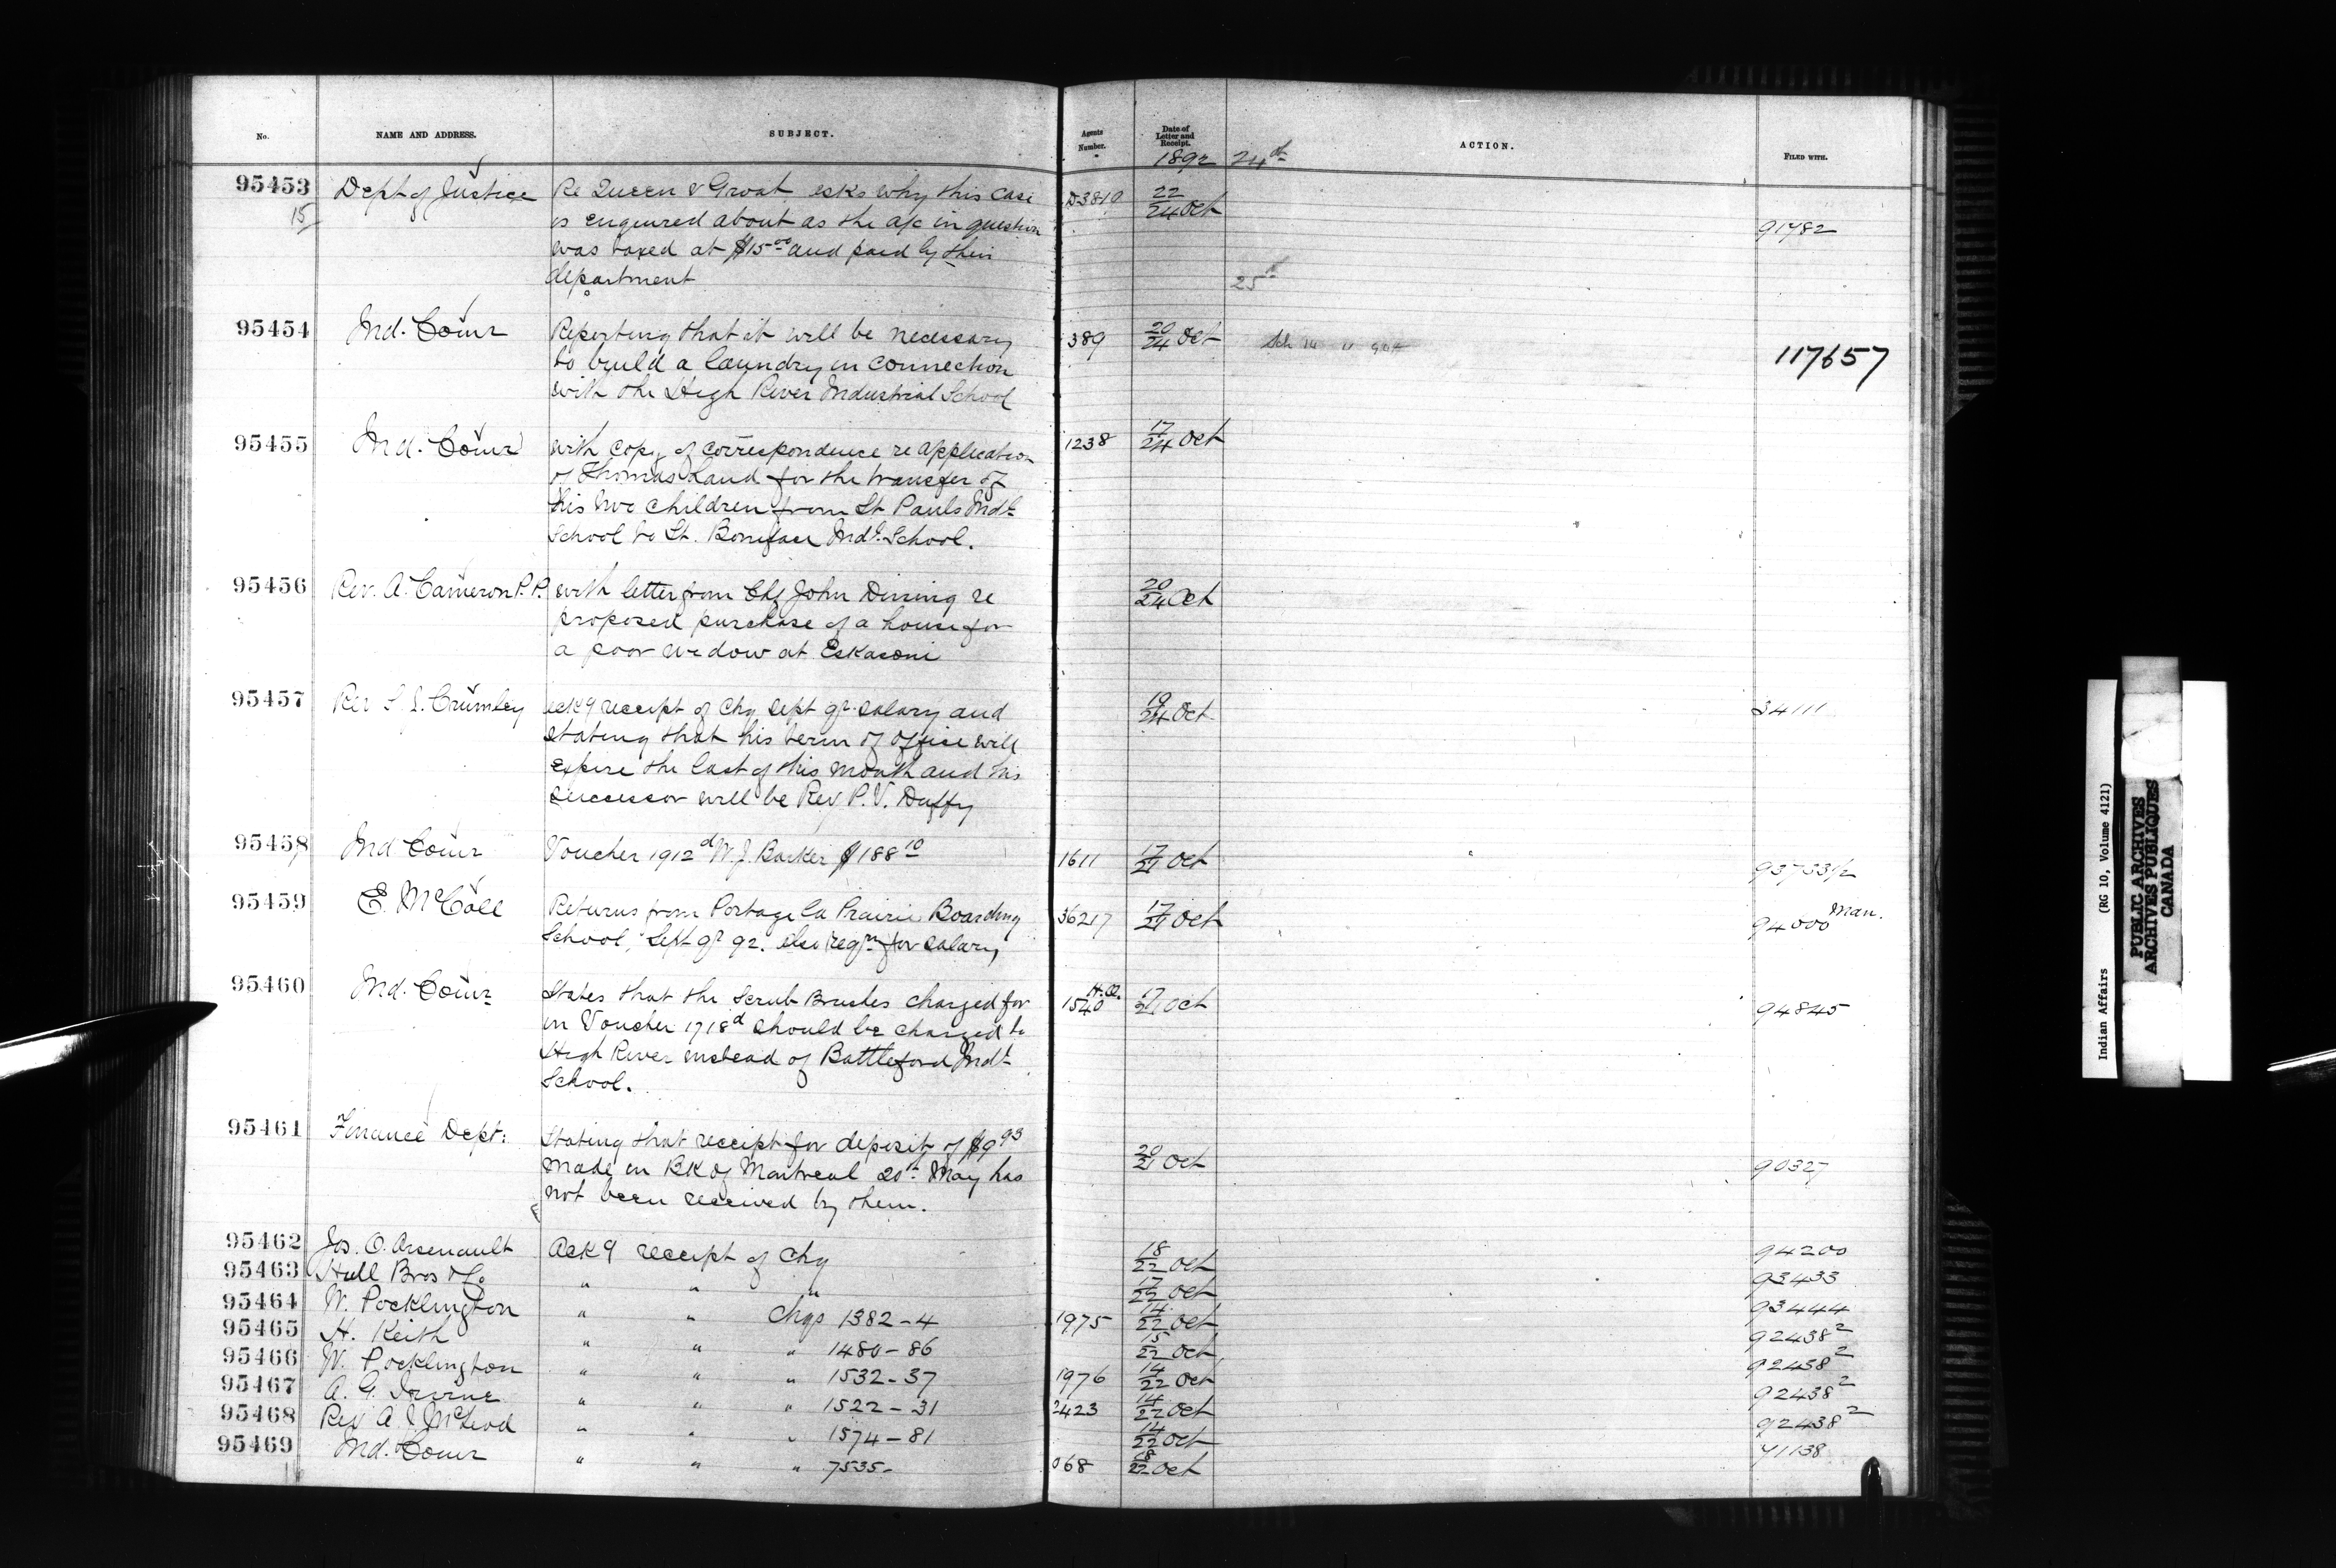 No. NAME AND ADDRESS. SUBJECT. Agents Number. Date of Letter and Receipt. ACTION. FILED WITH.
1892 24th
95453 Dept of Justice Re Queen v Groat asks why this case D3810 22/24 Oct
15 is enquired about as the a/c in question 91782
was taxed at $15.00 and paid by their
department
25th
95454 Ind. Comr Reporting that it will be necessary 389 20/24 Oct
to build a laundry in connection 117657
with the High River Industrial School
95455 Ind. Comr with copy of correspondence re application 1238 17/24 Oct
of Thomas Land for the transfer of
his two children from St Pauls Indl
School to St. Boniface Indl. School.
95456 Rev. A. Cameron P.P. with letter from Chf John Dining re 20/24 Oct
proposed purchase of a house for
a poor widow at Eskasoni
95457 Rev Crumley ackg receipt of chq Sept qr salary and 19/24 Oct 34111
stating that his term of office will
expire the last of this month and his
successor will be Rev P. V. Duffy
95458 Ind Comr Voucher 1912d W. J. Barker $188.10 1611 17/21 Oct 93733 1/2
95459 E. McColl Returns from Portage la Prairie Boarding 36217 17/21 Oct 94000 Man.
School, Sept qr 92. also reqn for salary
95460 Ind. Comr States that the Scrub Brushes charged for H.O. 1540 17/21 Oct 94845
in Voucher 1718d should be charged to
High River instead of Battleford Indl
School.
95461 Finance Dept: Stating that receipt for deposit of $9.93 20/21 Oct 90327
made in BK of Montreal 20th May has
not been received by them.
95462 Jos. O. Arsenault Ackg receipt of chq 18/22 Oct 94200
95463 Hull Bros & Co " " " 17/22 Oct 93433
95464 W. Pocklington " " Chqs 1382-4 1975 14/22 Oct 93444
95465 H. Keith " " " 1480-86 15/22 Oct 92438 2
95466 W. Pocklington " " " 1532-37 1976 14/22 Oct 92438 2
95467 A. G. Irvine " " " 1522-31 2423 14/22 Oct 92438 2
95468 Rev A. McLeod " " " 1574-81 14/22 Oct 92438 2
95469 Ind. Comr " " " 7535- 068 18/22 Oct 71138
Indian Affairs (RG 10, Volume 4121)
PUBLIC ARCHIVES
ARCHIVES PUBLIQUES
CANADA